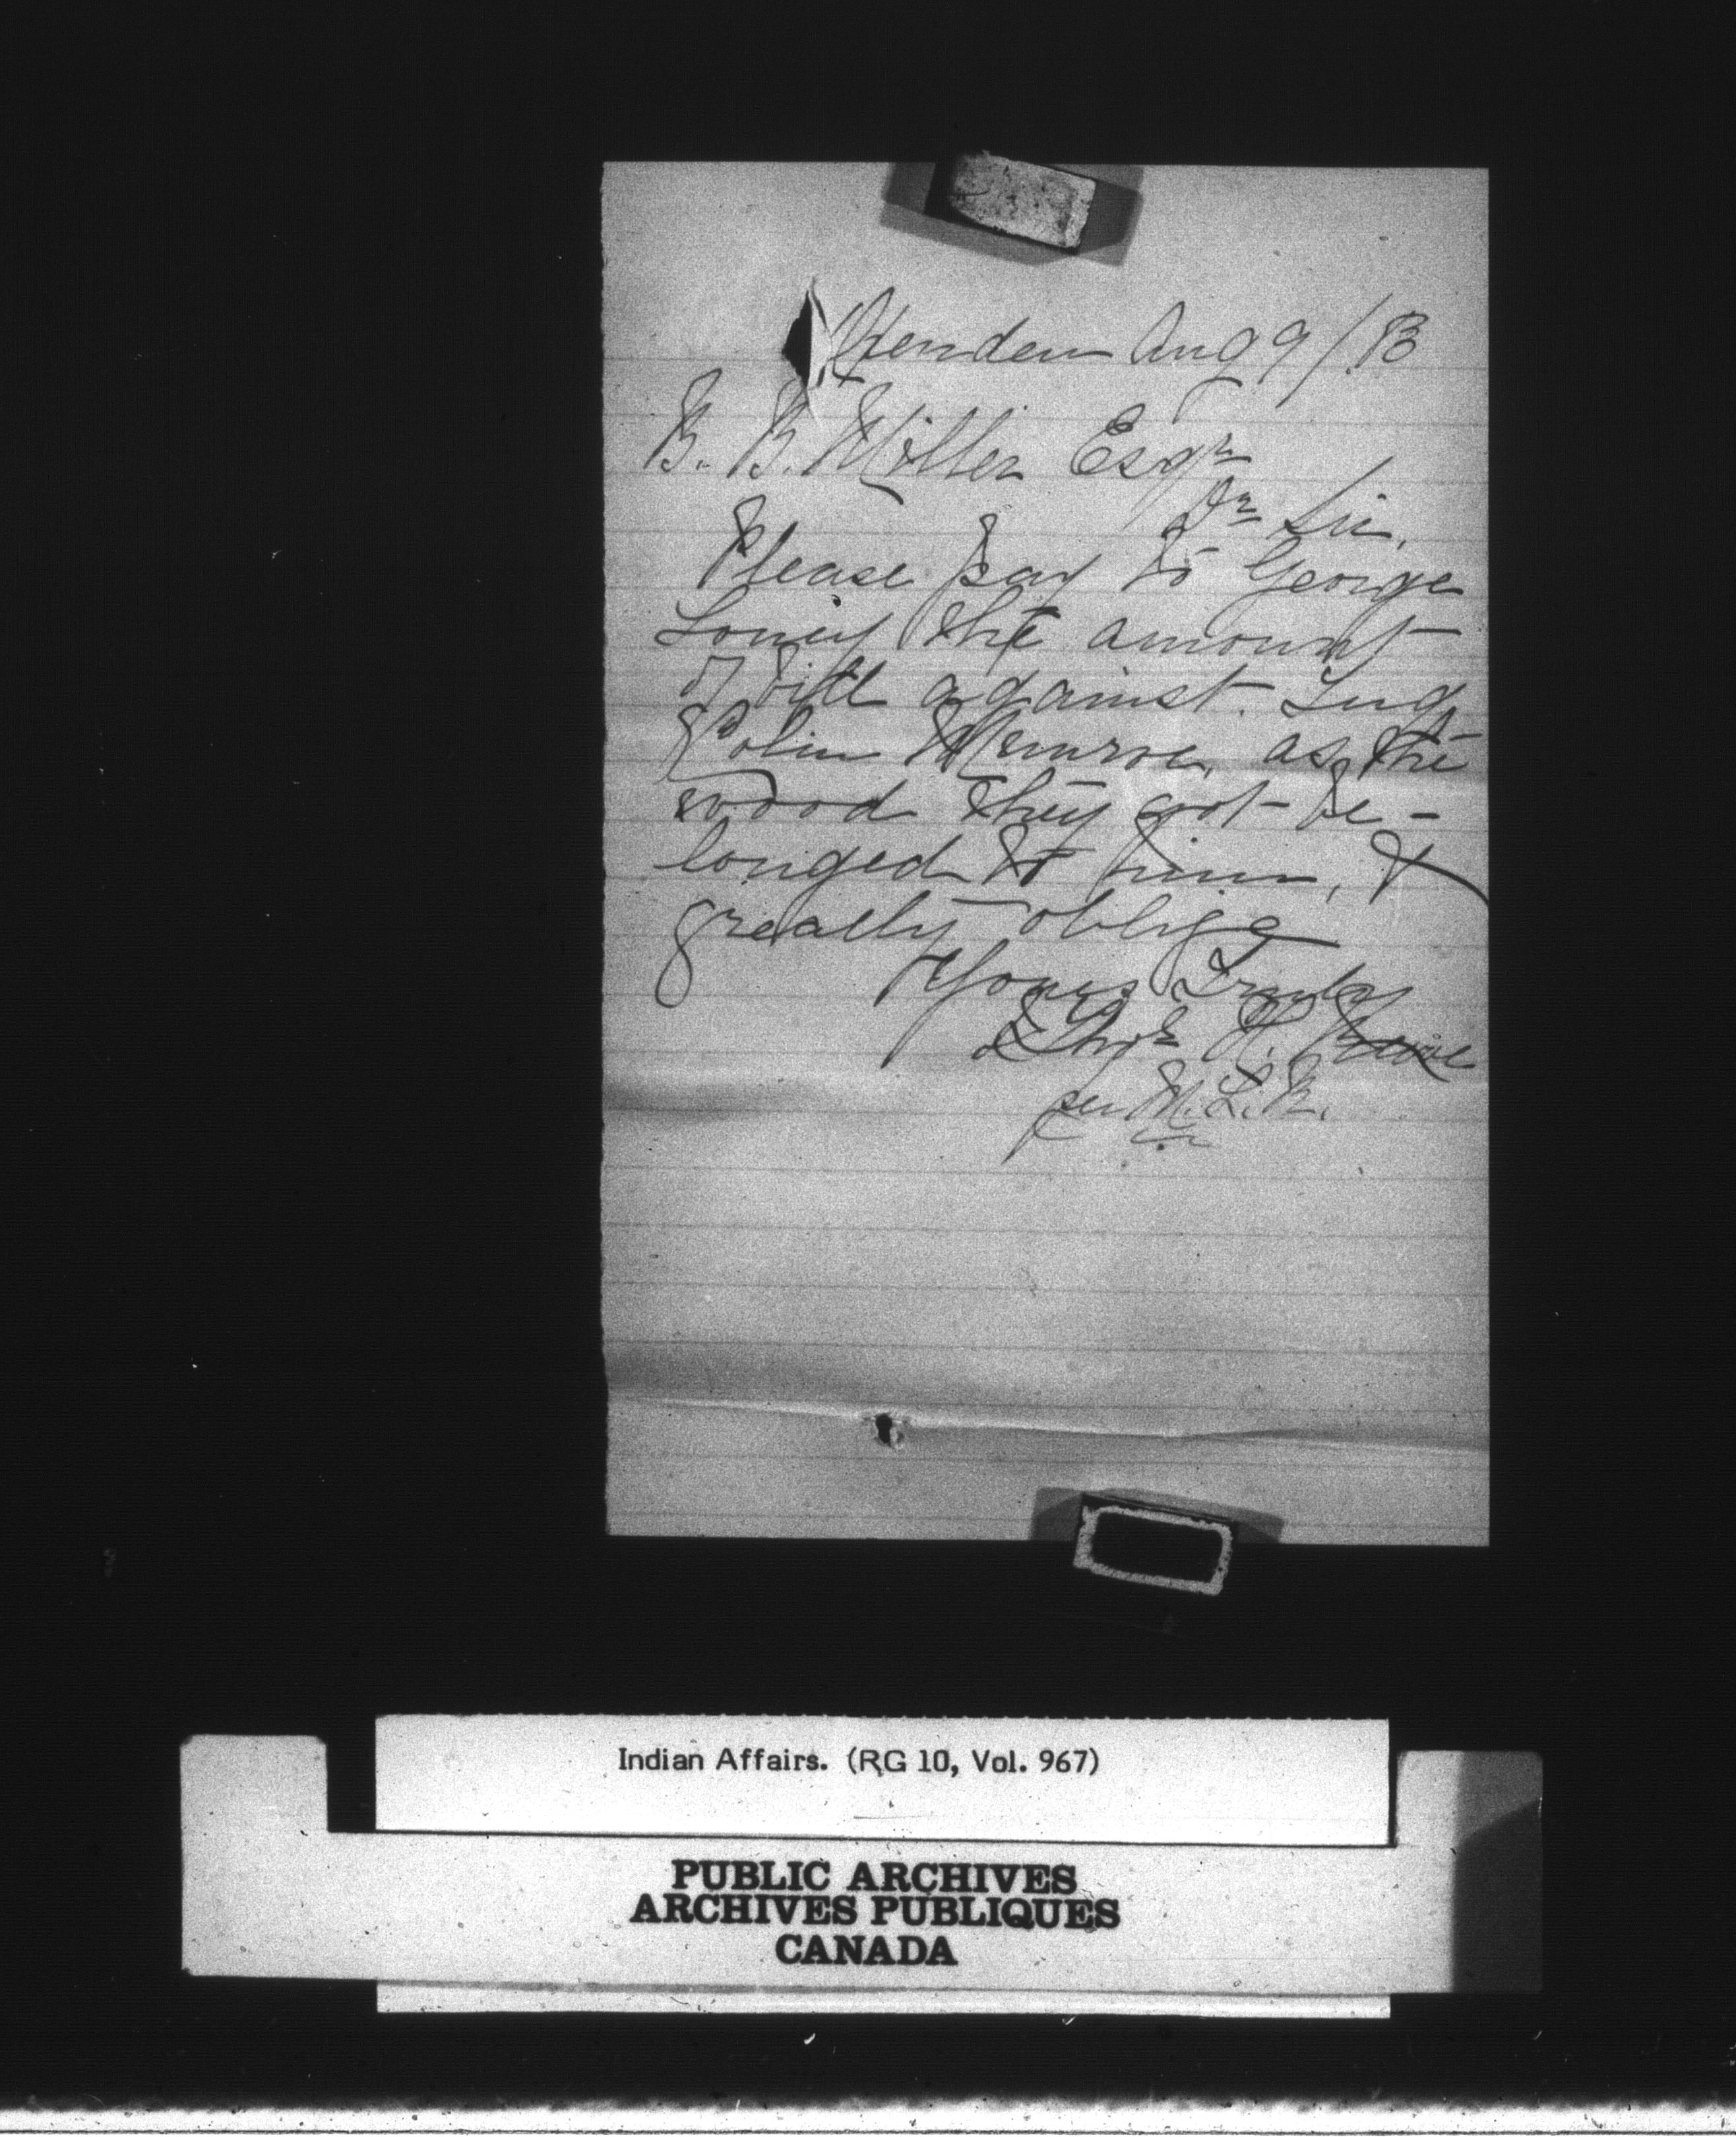 Aug 9 / 13
B. B. Miller Esqr
Dr Sir,
Please pay to George
Loney the amount
of bill against Tug
Colin Munroe, as the
wood they got be-
longed to him, &
greatly oblige
Yours Truly
H.
per M. L. K.
Indian Affairs. (RG 10, Vol. 967)
PUBLIC ARCHIVES
ARCHIVES PUBLIQUES
CANADA